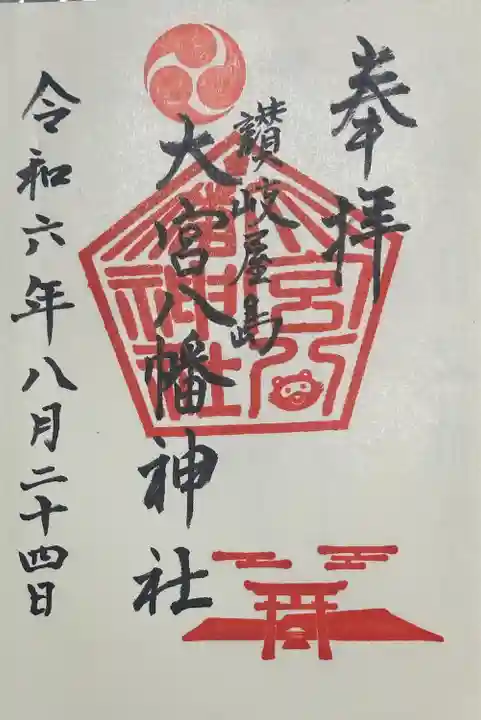 奉拝
讃岐屋島
大宮八幡神社
令和六年八月二十四日
大宮八
幡神社